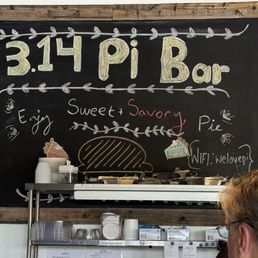 3.14 Pi Bar
Sweet + Savory
Enjoy
Pie
WIFI: Welovepi